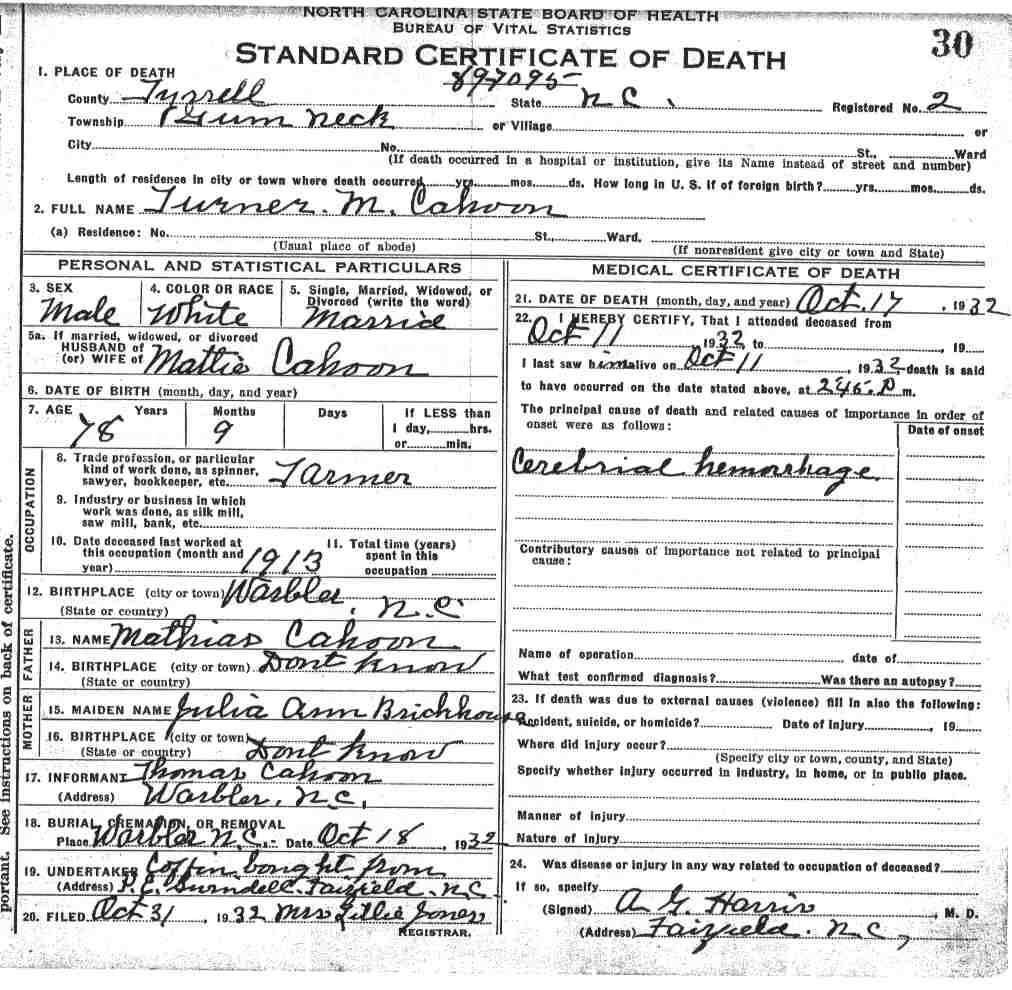 NORTH CAROLINA STATE BOARD OF HEALTH
BUREAU OF VITAL STATISTICS
STANDARD CERTIFICATE OF DEATH
30
1. PLACE OF DEATH
897095
County Tyrrell State N C. Registered No. 2
Township Gum Neck or Village or
City No. St., Ward
(If death occurred in a hospital or institution, give its Name instead of street and number)
Length of residence in city or town where death occurred yrs. mos. ds. How long in U. S. if of foreign birth? yrs. mos. ds.
2. FULL NAME Turner. M. Cahoon
(a) Residence: No. St., Ward.
(Usual place of abode) (If nonresident give city or town and State)
PERSONAL AND STATISTICAL PARTICULARS
3. SEX 4. COLOR OR RACE 5. Single, Married, Widowed, or
Divorced (write the word)
Male White Marrid
5a. If married, widowed, or divorced
HUSBAND of
(or) WIFE of Mattie Cahoon
6. DATE OF BIRTH (month, day, and year)
7. AGE Years Months Days If LESS than
78 9 I day, hrs.
or min.
OCCUPATION
8. Trade profession, or particular
kind of work done, as spinner,
sawyer, bookkeeper, etc. Farmer
9. Industry or business in which
work was done, as silk mill,
saw mill, bank, etc.
10. Date deceased last worked at 11. Total time (years)
this occupation (month and spent in this
year) 1913 occupation
12. BIRTHPLACE (city or town) Warbler,
(State or country) N.C.
FATHER
13. NAME Mathias Cahoon
14. BIRTHPLACE (city or town) Dont Know
(State or country)
MOTHER
15. MAIDEN NAME Julia Ann Brickhouse
16. BIRTHPLACE (city or town)
(State or country) Dont Know
17. INFORMANT Thomas Cahoon
(Address) Warbler, N.C.
18. BURIAL, CREMATION, OR REMOVAL
Place Warbler N.C. Date Oct 18, 1932
19. UNDERTAKER Coffin bought from
(Address) P. E. Fairfield. N.C.
20. FILED Oct 31, 1932 Mrs Lillie Jones
REGISTRAR.
MEDICAL CERTIFICATE OF DEATH
21. DATE OF DEATH (month, day, and year) Oct. 17, 1932
22. I HEREBY CERTIFY, That I attended deceased from
Oct 11 1932, to , 19
I last saw him alive on Oct 11, 1932, death is said
to have occurred on the date stated above, at 245. P m.
The principal cause of death and related causes of importance in order of
onset were as follows: Date of onset
Cerebrial hemorrhage
Contributory causes of importance not related to principal
cause:
Name of operation date of
What test confirmed diagnosis? Was there an autopsy?
23. If death was due to external causes (violence) fill in also the following:
Accident, suicide, or homicide? Date of injury , 19
Where did injury occur?
(Specify city or town, county, and State)
Specify whether injury occurred in industry, in home, or in public place.
Manner of injury
Nature of injury
24. Was disease or injury in any way related to occupation of deceased?
If so, specify
(Signed) A G Harris, M. D.
(Address) Fairfield. N.C,
portant. See instructions on back of certificate.